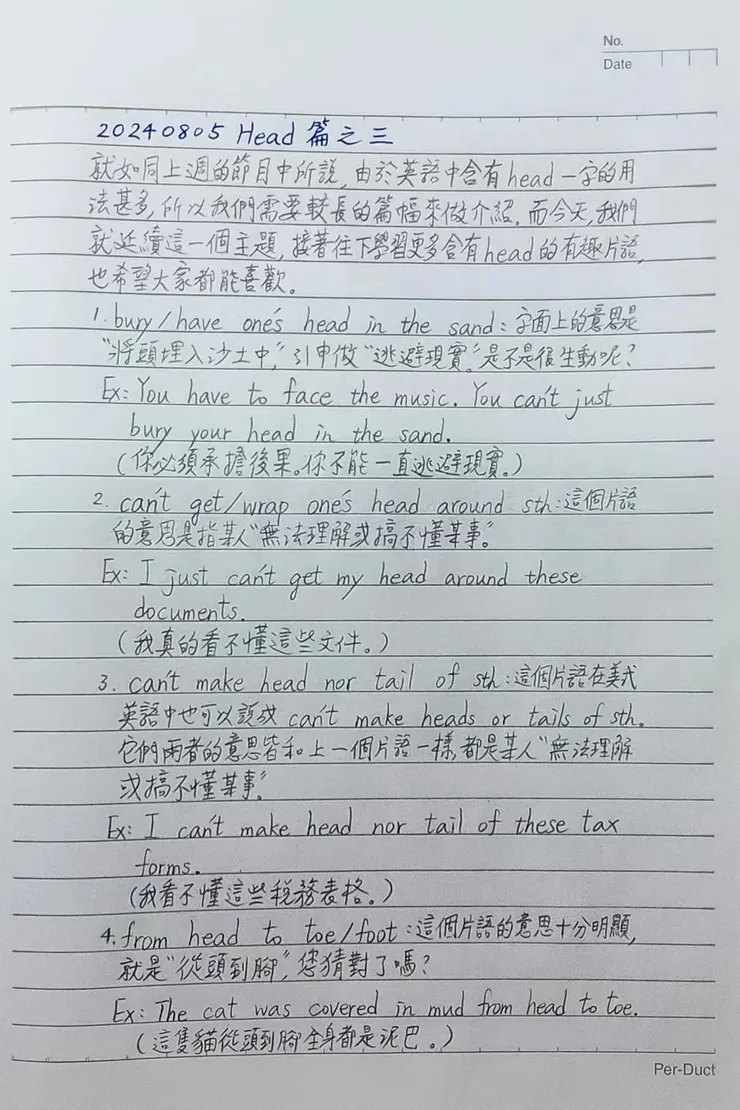 No.
Date
20240805 Head 篇之三
就如同上週的節目中所說, 由於英語中含有 head 一字的用
法甚多, 所以我們需要較長的篇幅來做介紹. 而今天, 我們
就延續這一個主題, 接著往下學習更多含有 head 的有趣片語,
也希望大家都能喜歡。
1. bury/have one's head in the sand: 字面上的意思是
"將頭埋入沙土中," 引申做 "逃避現實." 是不是很生動呢?
Ex: You have to face the music. You can't just
bury your head in the sand.
(你必須承擔後果。你不能一直逃避現實。)
2. can't get/wrap one's head around sth: 這個片語
的意思是指某人 "無法理解或搞不懂某事."
Ex: I just can't get my head around these
documents.
(我真的看不懂這些文件。)
3. can't make head nor tail of sth: 這個片語在美式
英語中也可以說成 can't make heads or tails of sth.
它們兩者的意思皆和上一個片語一樣, 都是某人 "無法理解
或搞不懂某事."
Ex: I can't make head nor tail of these tax
forms.
(我看不懂這些稅務表格。)
4. from head to toe/foot: 這個片語的意思十分明顯,
就是 "從頭到腳," 您猜對了嗎?
Ex: The cat was covered in mud from head to toe.
(這隻貓從頭到腳全身都是泥巴。)
Per-Duct